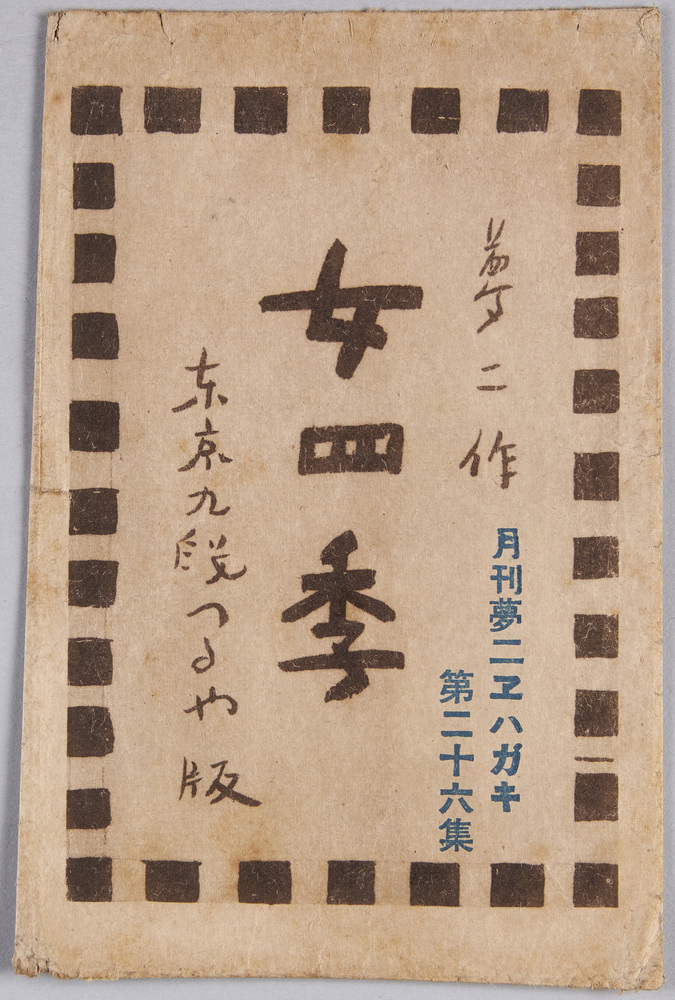 夢二作
月刊夢二ヱハガキ
第二十六集
女四季
東京九段つるや版